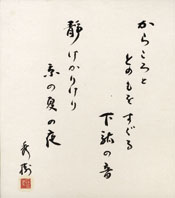 からころと
とのもをすぐる
下駄の音
静けかりけり
京の夏の夜
秀樹